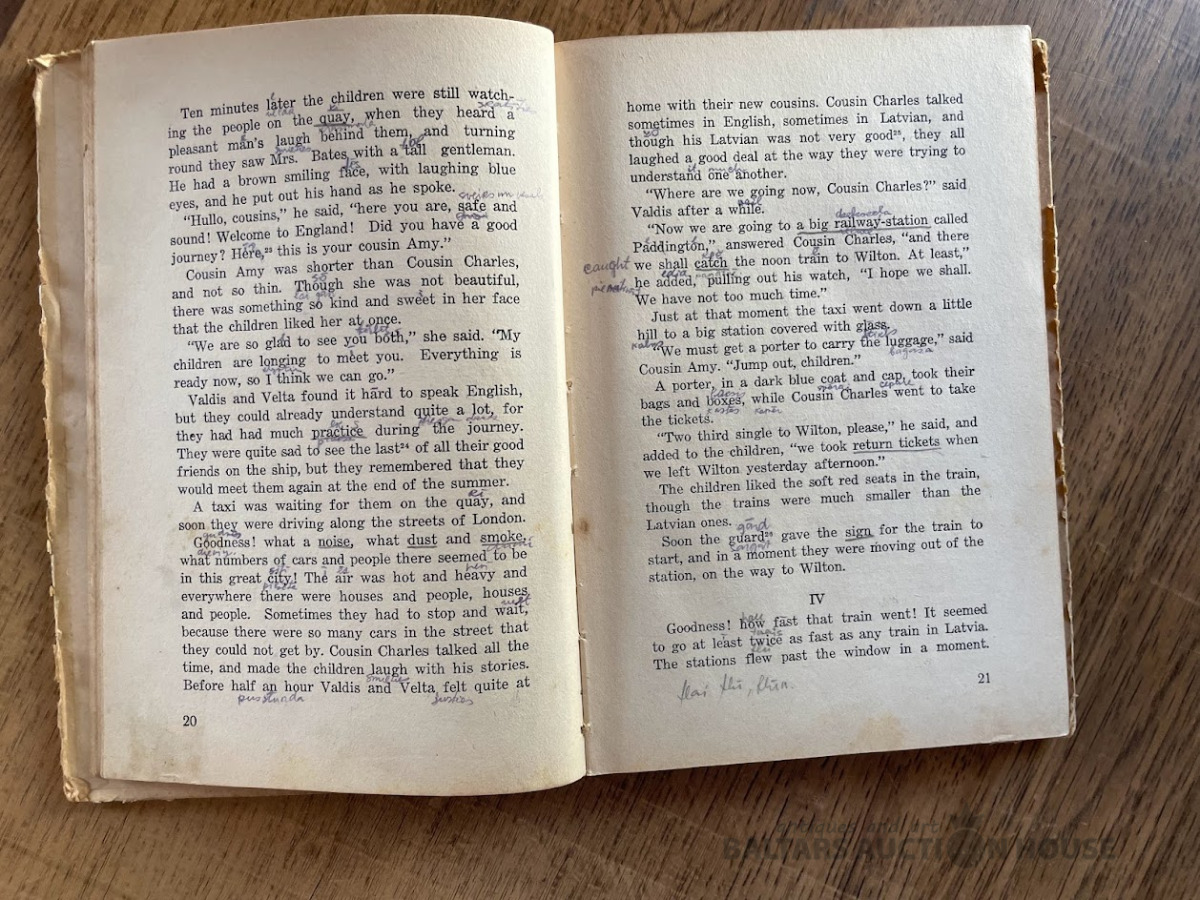 Ten minutes later the children were still watch-
ing the people on the quay, when they heard a
pleasant man's laugh behind them, and turning
round they saw Mrs. Bates with a tall gentleman.
He had a brown smiling face, with laughing blue
eyes, and he put out his hand as he spoke.
"Hullo, cousins," he said, "here you are, safe and
sound! Welcome to England! Did you have a good
journey? Here,²³ this is your cousin Amy."
Cousin Amy was shorter than Cousin Charles,
and not so thin. Though she was not beautiful,
there was something so kind and sweet in her face
that the children liked her at once.
"We are so glad to see you both," she said. "My
children are longing to meet you. Everything is
ready now, so I think we can go."
Valdis and Velta found it hard to speak English,
but they could already understand quite a lot, for
they had had much practice during the journey.
They were quite sad to see the last²⁴ of all their good
friends on the ship, but they remembered that they
would meet them again at the end of the summer.
A taxi was waiting for them on the quay, and
soon they were driving along the streets of London.
Goodness! what a noise, what dust and smoke,
what numbers of cars and people there seemed to be
in this great city! The air was hot and heavy and
everywhere there were houses and people, houses
and people. Sometimes they had to stop and wait,
because there were so many cars in the street that
they could not get by. Cousin Charles talked all the
time, and made the children laugh with his stories.
Before half an hour Valdis and Velta felt quite at
pusstunda
20
home with their new cousins. Cousin Charles talked
sometimes in English, sometimes in Latvian, and
though his Latvian was not very good²⁵, they all
laughed a good deal at the way they were trying to
understand one another.
"Where are we going now, Cousin Charles?" said
Valdis after a while.
"Now we are going to a big railway-station called
Paddington," answered Cousin Charles, "and there
we shall catch the noon train to Wilton. At least,"
caught
he added, "pulling out his watch, "I hope we shall.
We have not too much time."
Just at that moment the taxi went down a little
hill to a big station covered with glass.
"We must get a porter to carry the luggage," said
Cousin Amy. "Jump out, children."
A porter, in a dark blue coat and cap, took their
bags and boxes, while Cousin Charles went to take
the tickets.
"Two third single to Wilton, please," he said, and
added to the children, "we took return tickets when
we left Wilton yesterday afternoon."
The children liked the soft red seats in the train,
though the trains were much smaller than the
Latvian ones.
Soon the guard²⁶ gave the sign for the train to
start, and in a moment they were moving out of the
station, on the way to Wilton.
IV
Goodness! how fast that train went! It seemed
to go at least twice as fast as any train in Latvia.
The stations flew past the window in a moment.
21
antiques and art
BALTARS AUCTION HOUSE